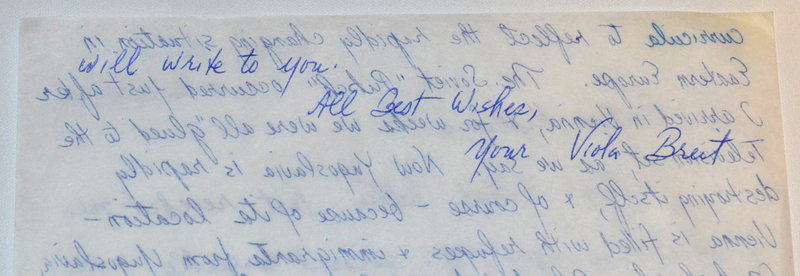 will write to you.
All Best Wishes,
Your Viola Breit
curricula to reflect the rapidly changing situation in
Eastern Europe. The Soviet "Putsch" occurred just after
I arrived in Vienna, & for weeks we were all "glued to the
Television set," as we say. Now Yugoslavia is rapidly
destroying itself, & of course – because of its location –
Vienna is filled with refugees & immigrants from Yugoslavia,